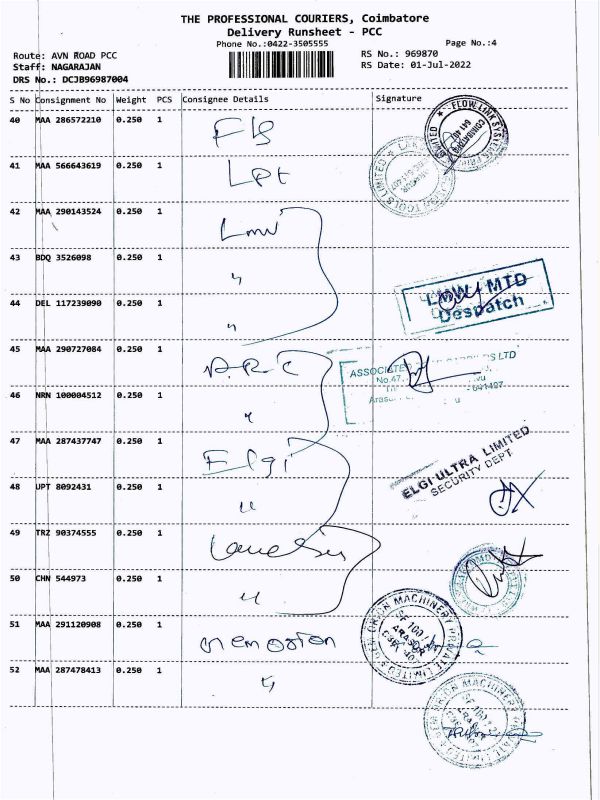 THE PROFESSIONAL COURIERS, Coimbatore
Delivery Runsheet - PCC
Phone No.:0422-3505555
Page No.:4
Route: AVN ROAD PCC
RS No.: 969870
Staff: NAGARAJAN
RS Date: 01-Jul-2022
DRS No.: DCJB96987004
S No Consignment No Weight PCS Consignee Details Signature
40 MAA 286572210 0.250 1
FLOW LINK SYSTEMS
41 MAA 566643619 0.250 1 LPT
TOOLS LIMITED
42 MAA 290143524 0.250 1 Lmw
43 BDQ 3526098 0.250 1 "
LMW MTD
Despatch
44 DEL 117239090 0.250 1 "
45 MAA 290727084 0.250 1 A.R.C
ASSOCIATED LTD
No.47,
641407
46 NRN 100004512 0.250 1 "
47 MAA 287437747 0.250 1 Elgi
ELGI ULTRA LIMITED
SECURITY DEPT.
48 UPT 8092431 0.250 1 "
49 TRZ 90374555 0.250 1
50 CHN 544973 0.250 1 "
51 MAA 291120908 0.250 1
ORION MACHINERY PRIVATE LIMITED
52 MAA 287478413 0.250 1 "
ORION MACHINERY PRIVATE LIMITED